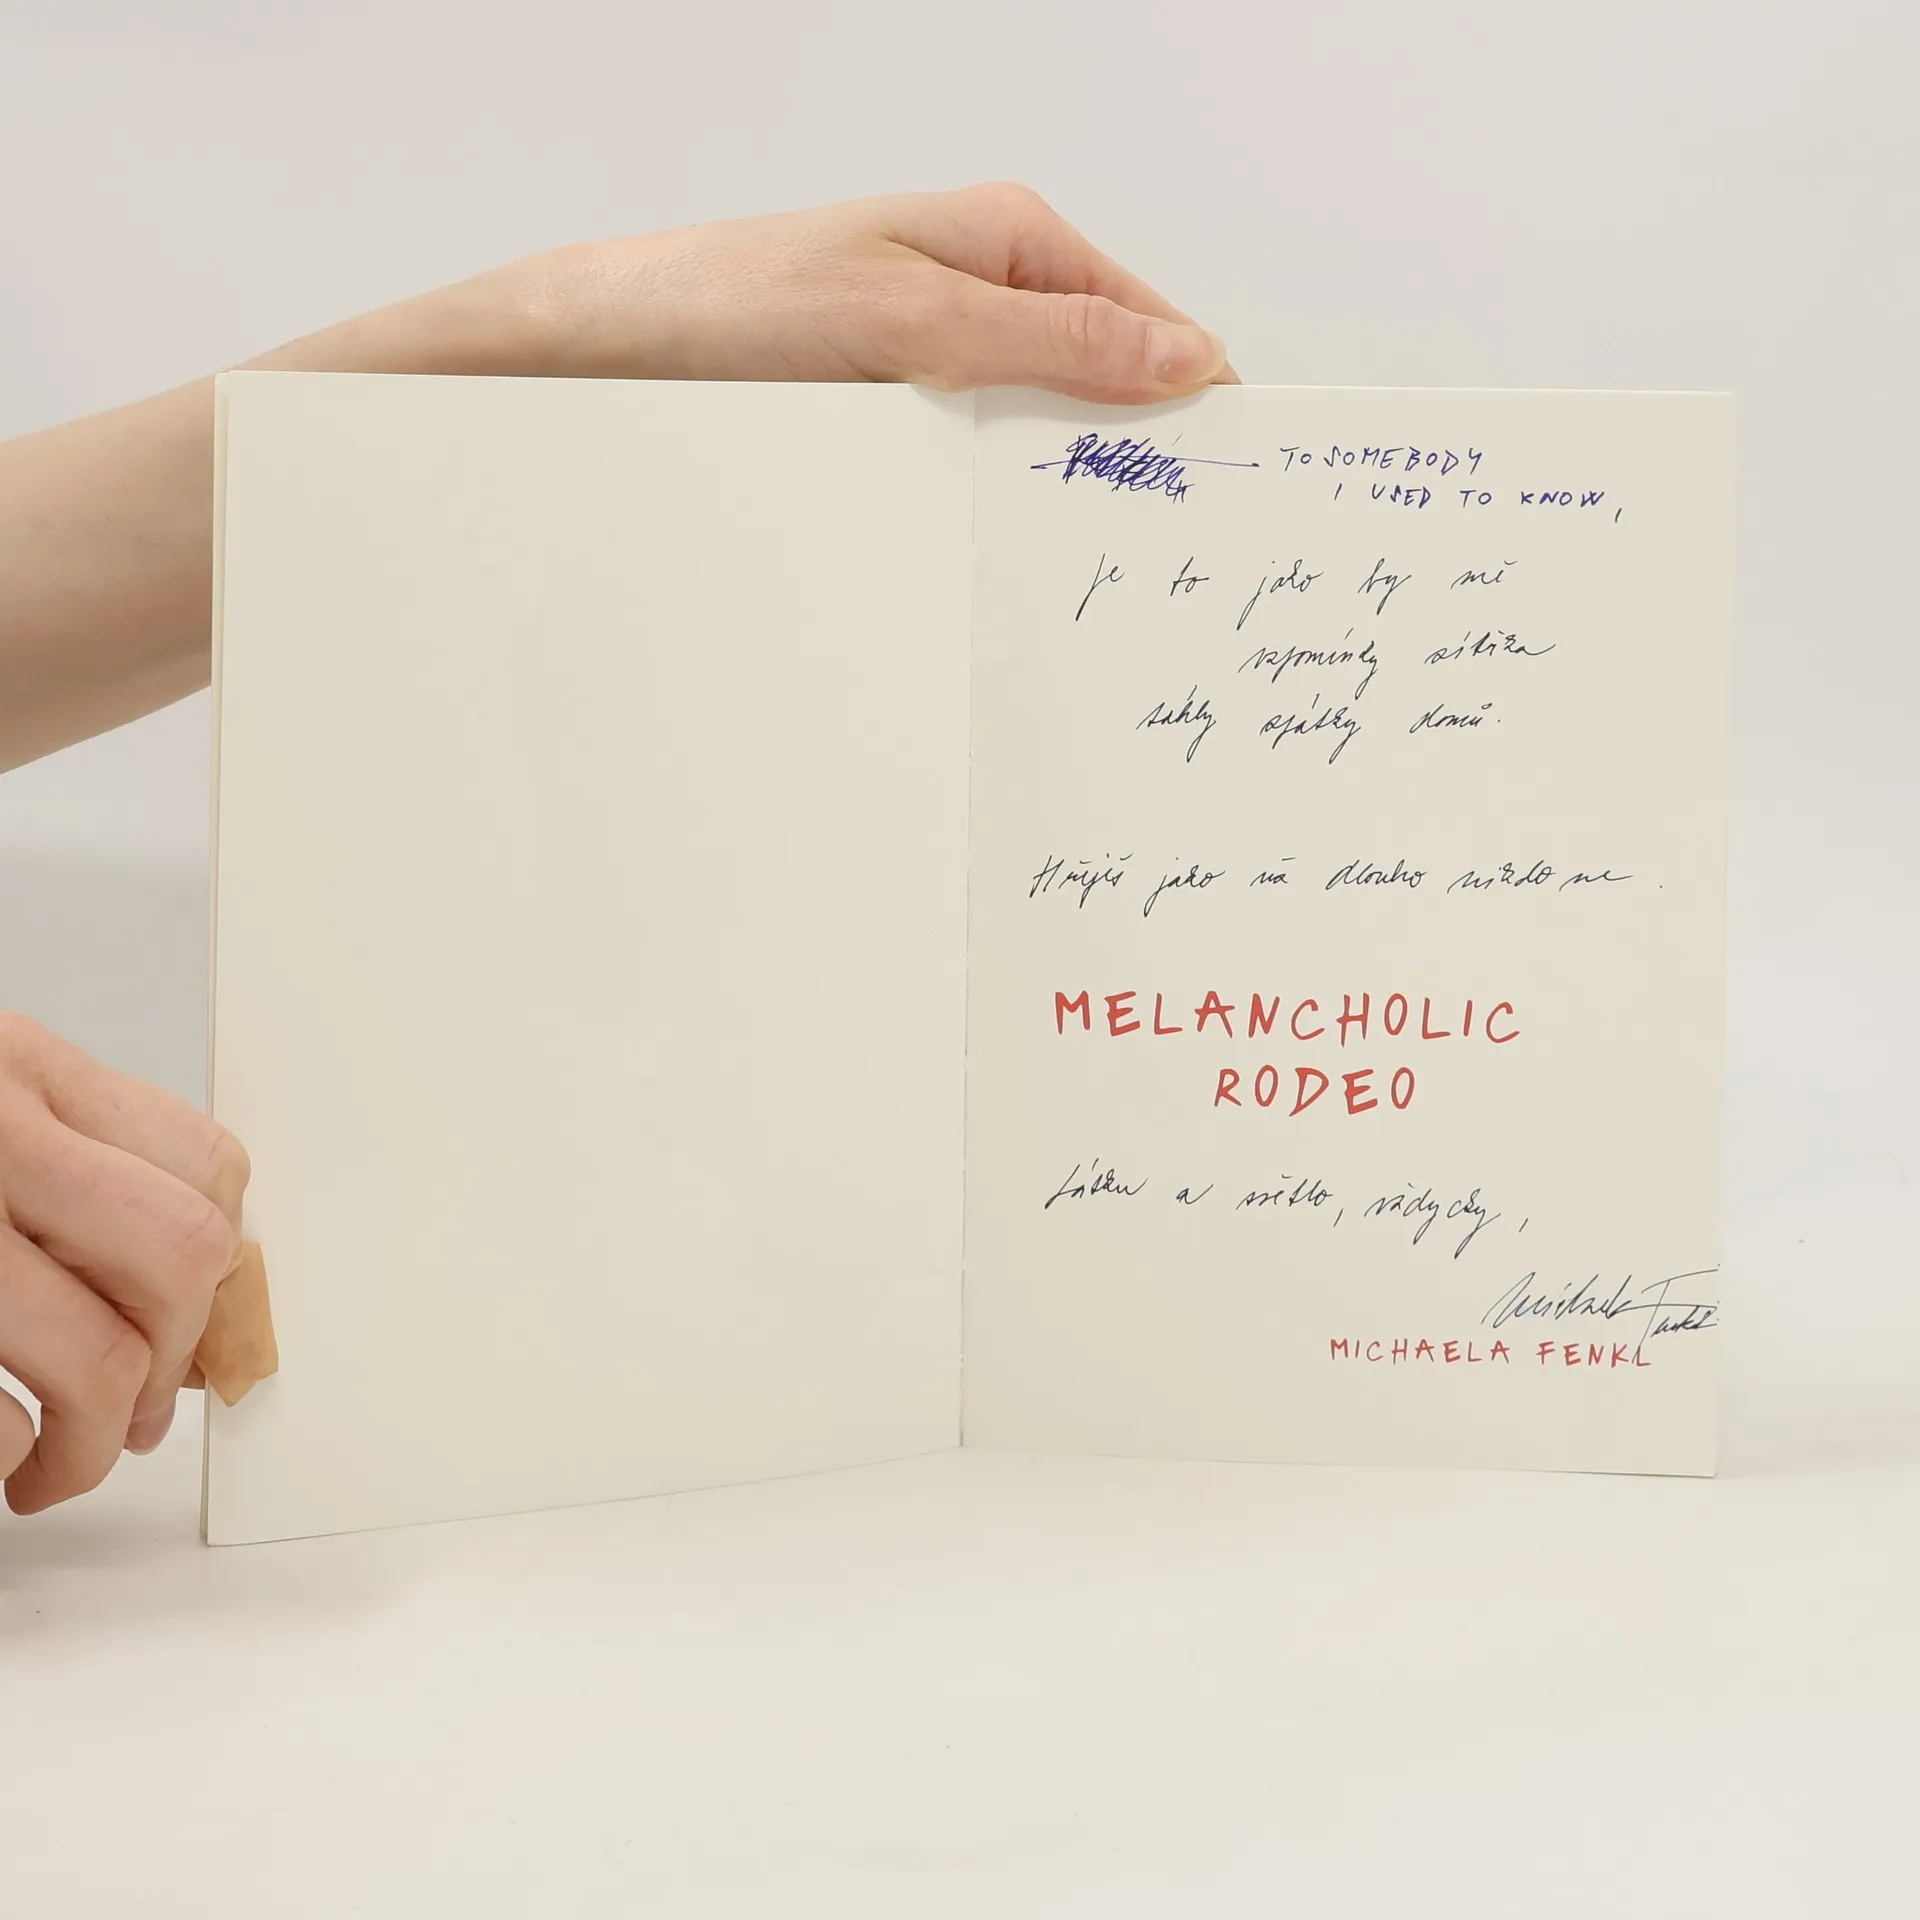 TO SOMEBODY
I USED TO KNOW,
je to jako by mě
vzpomínky zítřka
táhly zpátky domů.
Hřeješ jako už dlouho nikdo ne.
MELANCHOLIC
RODEO
Lásku a světlo, vždycky,
Michaela Fenkl
MICHAELA FENKL